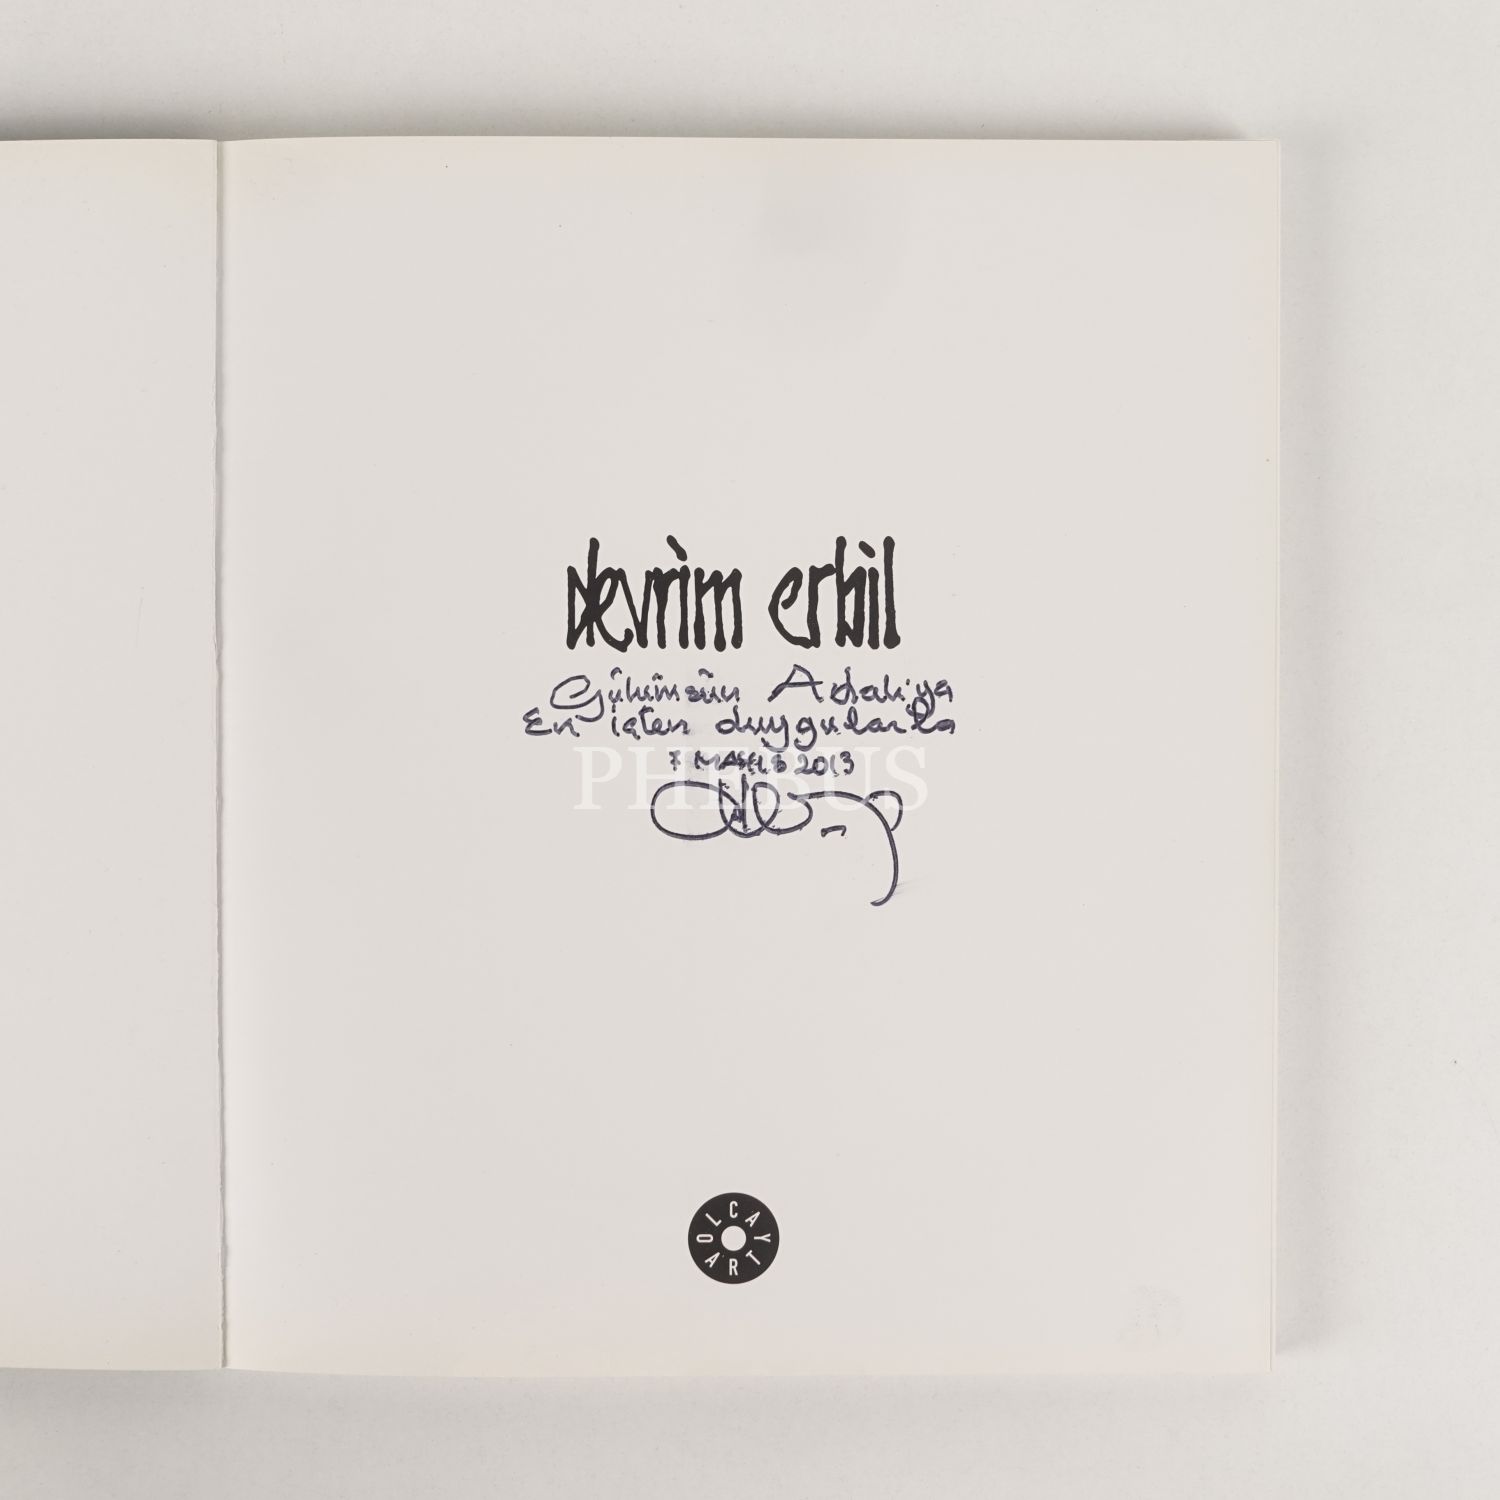 devrim erbil
Gülümsün Adalı'ya
En içten duygularla
7 MAYIS 2013
PHEBUS
OLCAY ART